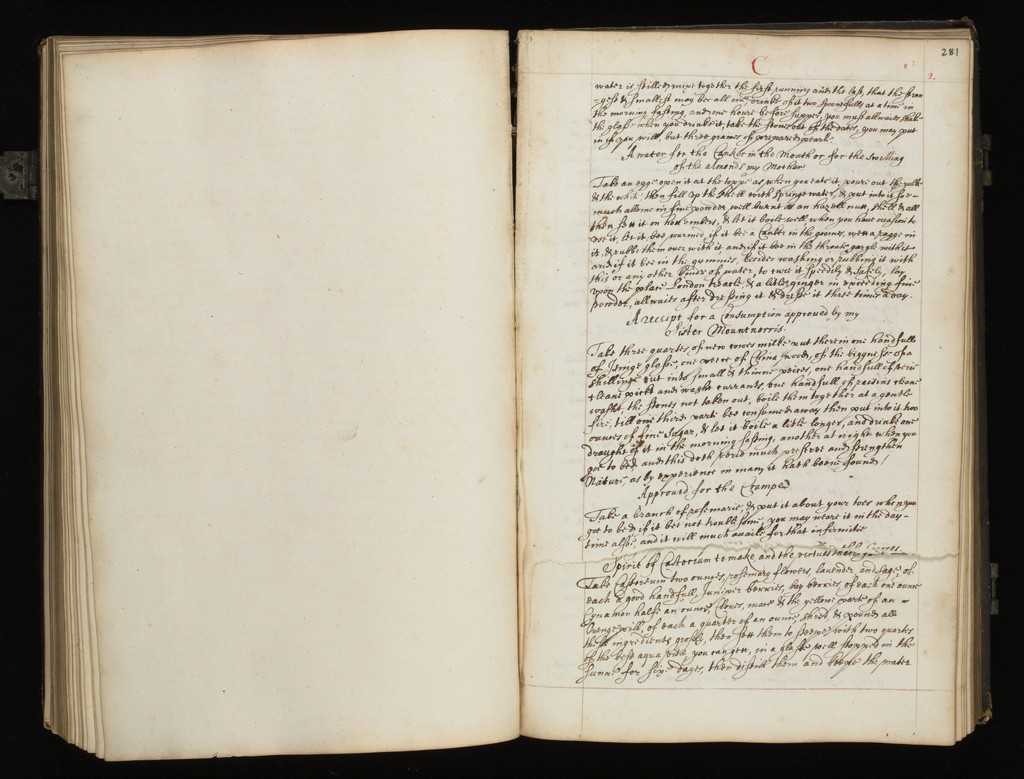 281
C
2.
water is stilled mixe together the first running and the last, that the stron
=gest & smallest may bee all one, drinke of it two spoonefulls at a time in
the morning fasting, and one houre before supper, you must allwaies shake
the glasse when you drinke it, take the stones out of the dates, you may put
in if you will, but three graines of prepared pearle
A water for the Canker in the Mouth or for the swelling
of the almonds my Mother
Take an egge open it at the toppe as when you eate it, poure out the yolke
& the white, then fill up the shell with springe water, & put into it for=
much allome in fine powder will burnt as an hazell nutt, shell & all
then sett it on hott embers, & let it boile well when you have occasion to
use it, let it bee warmed, if it bee a Canker in the goomes, wett a ragge in
it, & rubbe them over with it and if it bee in the throate gargle with it
and if it bee in the gummes, besides washing or rubbing it with
this or any other kinde of water, to cure it speedily & safely, lay
upon the place London treacle, & a litle ginger in exceeding fine
powder, allwaies after dressing it & dresse it three times a day.
A receipt for a Consumption approved by my
Sister Mountnorris.
Take three quartes of new cowes milke put therein one handfull
of Isinge glasse, one peece of China wood, of the biggnesse of a
shillinge cut into small & thinne peices, one handfull of very
cleane pickt and washt currants, one handfull of raisins cleane
washt, the stones not taken out, boile them together at a gentle
fire, till one third parte bee consumed away then put into it two
ounces of fine Sugar, & let it boile a litle longer, and drinke one
draught of it in the morning fasting, another at night when you
goe to bed, and this doth very much preserve and strengthen
Nature, as by experience in many it hath beene found.
Approved for the Crampe
Take a branch of rosemarie, & put it about your toes when you
goe to bed if it bee not troublesome, you may weare it in the day=
time also, and it will much availe for that infirmitie
Spirit of Castorium to make and the vertues
Take Castorium two ounces, rosemary flowers, lavender, and sage, of
each a good handfull, Juniper berries, bay berries, of each one ounce
Cynamon halfe an ounce, Cloves, mace & the yellow parte of an
Orenge pill, of each a quarter of an ounce, shred & pound all
these ingredients grosse, then sett them to steepe with two quartes
of the best aqua vitae you can gett, in a glasse well stopped in the
Sunne for six dayes, then distill them and keepe the water